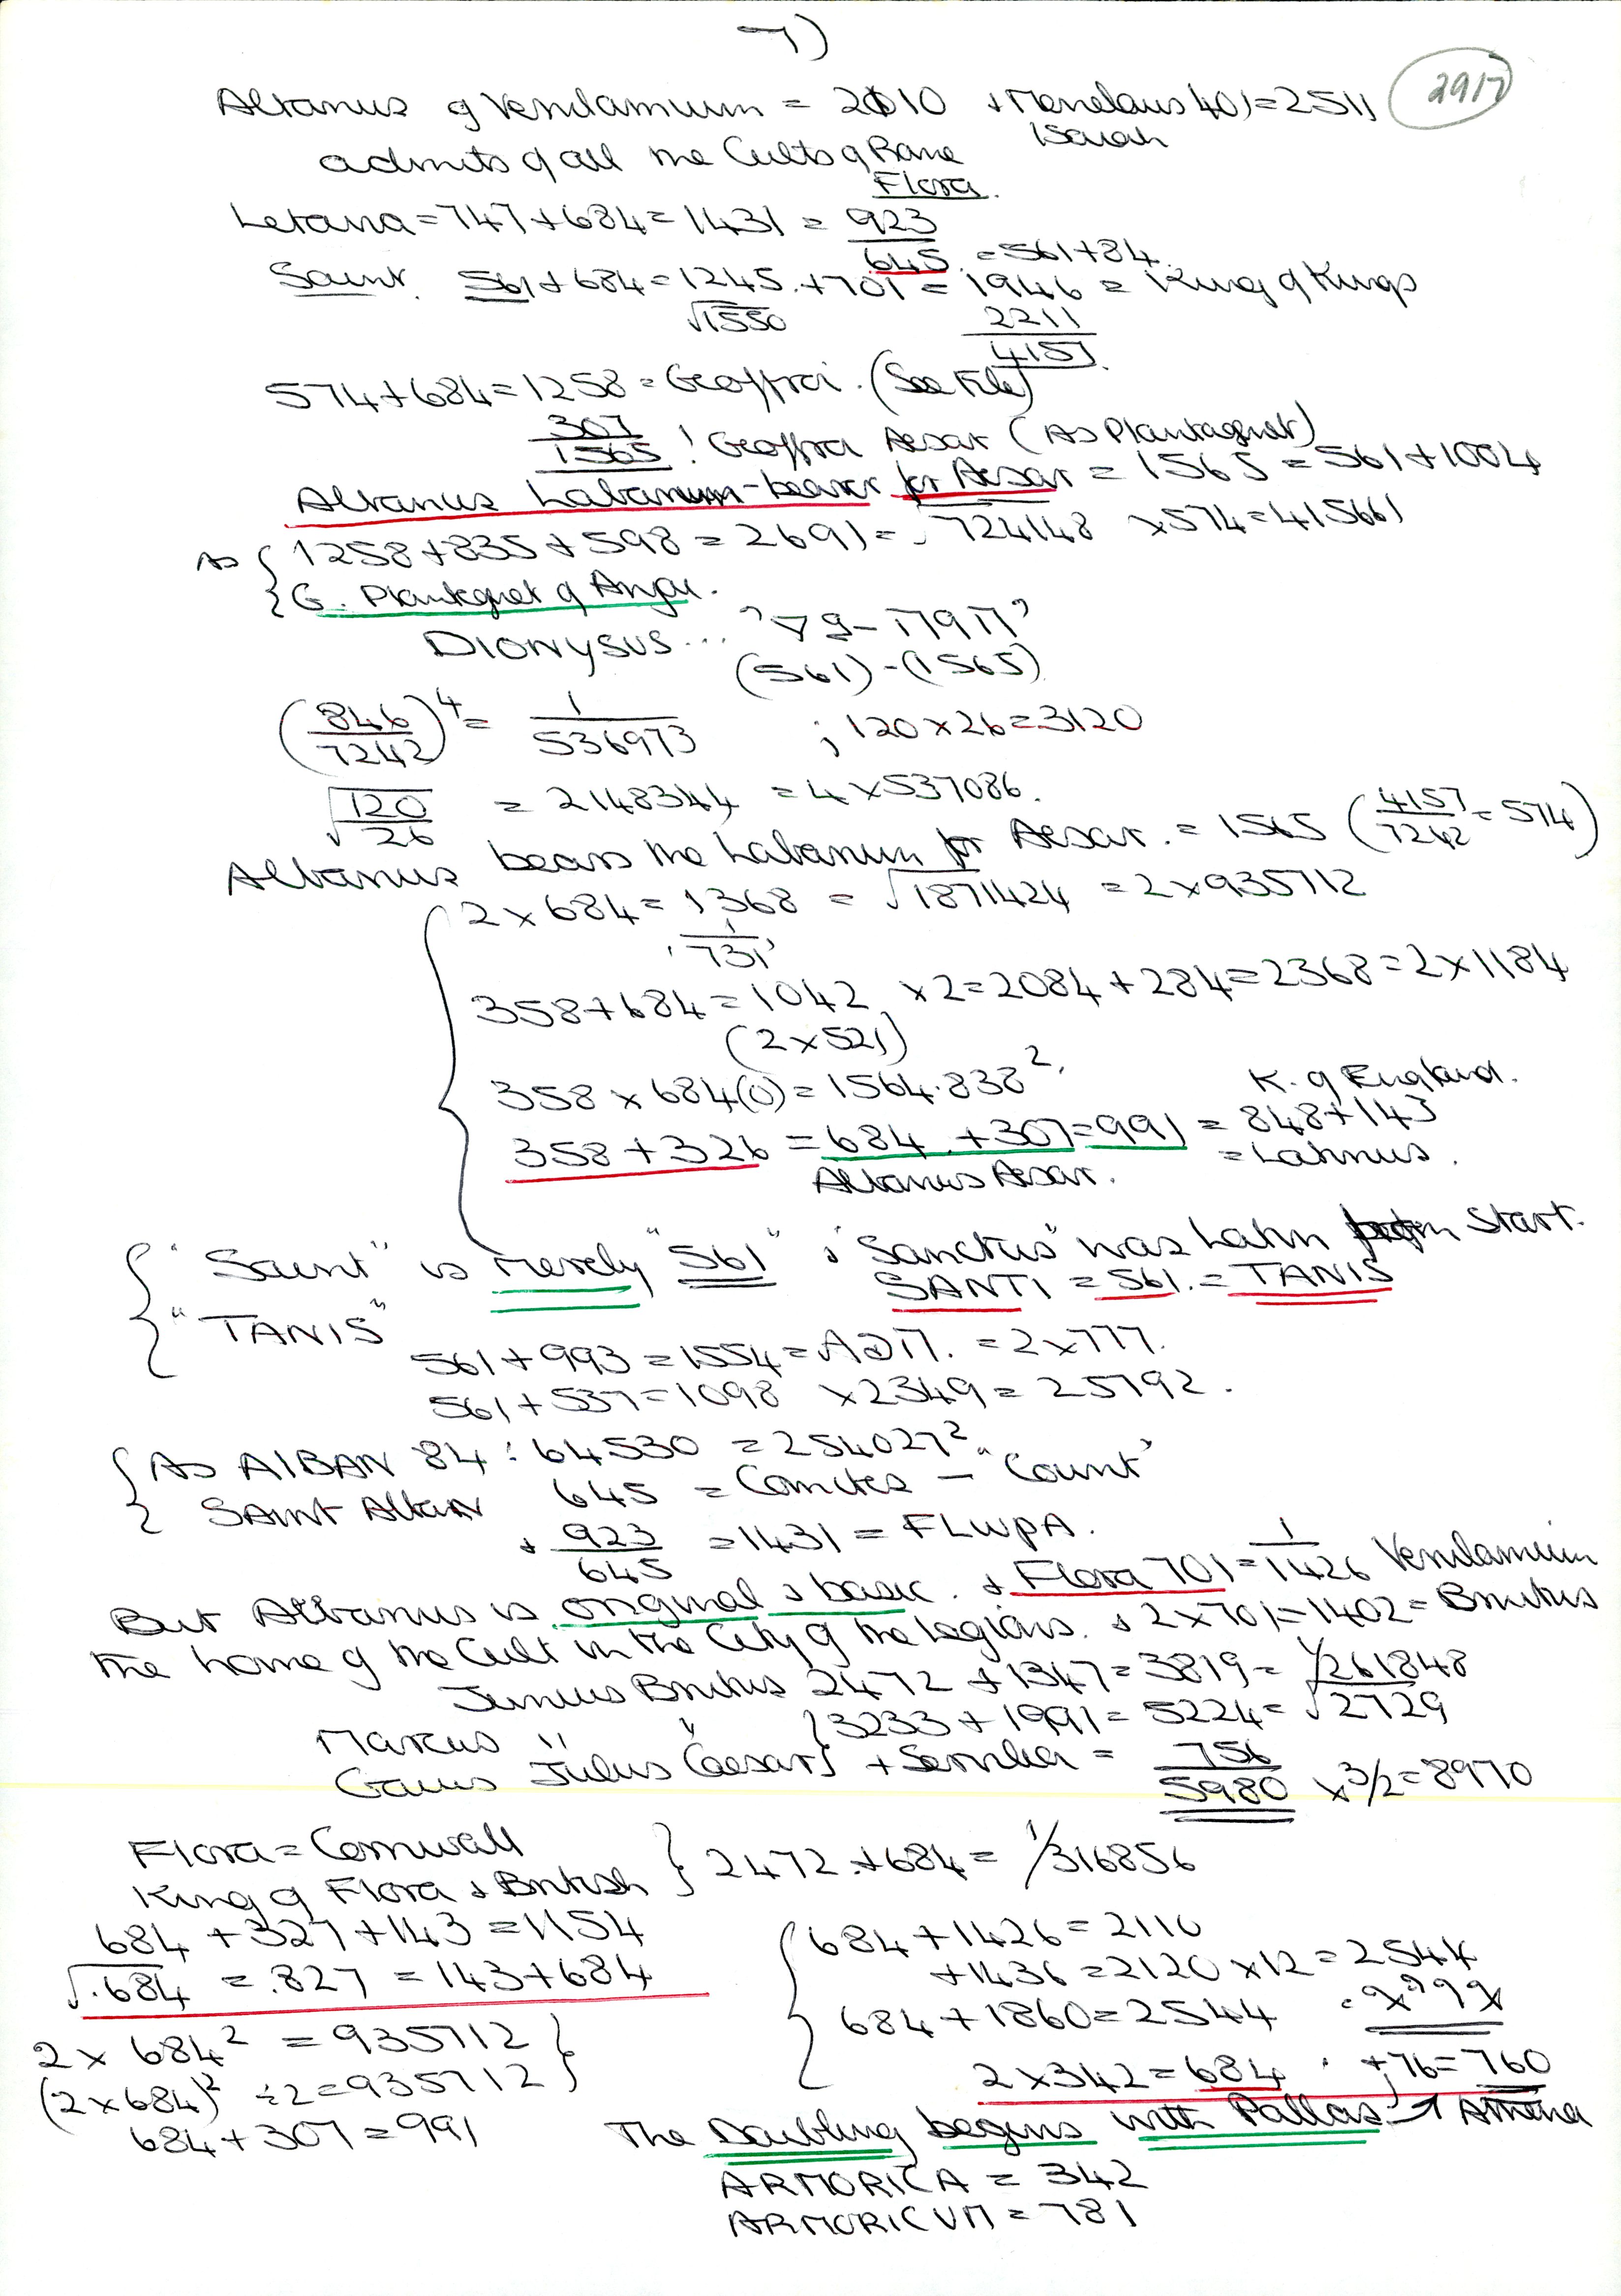 7)
2917
Albanus of Verulamium = 2010 + Menelaus 401 = 2511
Isaiah
admits of all the Cults of Rome
Flora.
Letana = 747 + 684 = 1431 = 923
645 = 561 + 84
Saint. 561 + 684 = 1245. + 701 = 1946 = King of Kings
√1550 2211
4157
574 + 684 = 1258 = Geoffroi. (See File)
307
1565 ! Geoffroi Aesar (As Plantagnet)
Albanus Labanum-bearer for Aesar = 1565 = 561 + 1004
As { 1258 + 835 + 598 = 2691 = √724148 × 574 = 415661
{ G. Plantgnet of Anjou.
DIONYSUS...
(561) - (1565)
(846/7242)⁴ = 1/536973 ; 120 × 26 = 3120
√120/26 = 2148344 = 4 × 537086.
Albanus bears the Labanum for Aesar. = 1565 (4157/7242 = 574)
2 × 684 = 1368 = √1871424 = 2 × 935712
'1/731'
358 + 684 = 1042 × 2 = 2084 + 284 = 2368 = 2 × 1184
(2 × 521)
358 × 684(0) = 1564.838².
K. of England.
358 + 326 = 684 + 307 = 991 = 848 + 143
Albanus Aesar. = Latinus.
"Saint" is merely "561" & "Sanctus" was Latin from Start.
SANTI = 561. = TANIS
"TANIS"
561 + 993 = 1554 = = 2 × 777.
561 + 537 = 1098 × 2349 = 25792.
{ As AlBAN 84 : 64530 = 254027²
{ SAINT Alban 645 = Comites - "Count"
+ 923/645 = 1431 = FLWPA.
But Albanus is original & basic. & Flora 701 = 1/1426 Verulamium
the home of the Cult in the City of the Legions. & 2 × 701 = 1402 = Brutus
Junius Brutus 2472 + 1347 = 3819 = 1/261848
Marcus " " } 3233 + 1991 = 5224 = √2729
Gaius Julius Caesar } + Servilia = 756
5980 × 3/2 = 8970
Flora = Cornwall
King of Flora & British } 2472 + 684 = 1/316856
684 + 327 + 143 = 1154
√.684 = .827 = 143 + 684
2 × 684² = 935712
(2 × 684)² ÷ 2 = 935712
684 + 307 = 991
684 + 1426 = 2110
+ 1436 = 2120 × 12 = 2544
684 + 1860 = 2544
2 × 342 = 684 ; + 76 = 760
The Doubling begins with Pallas → Athena
ARMORICA = 342
ARMORICVM = 781